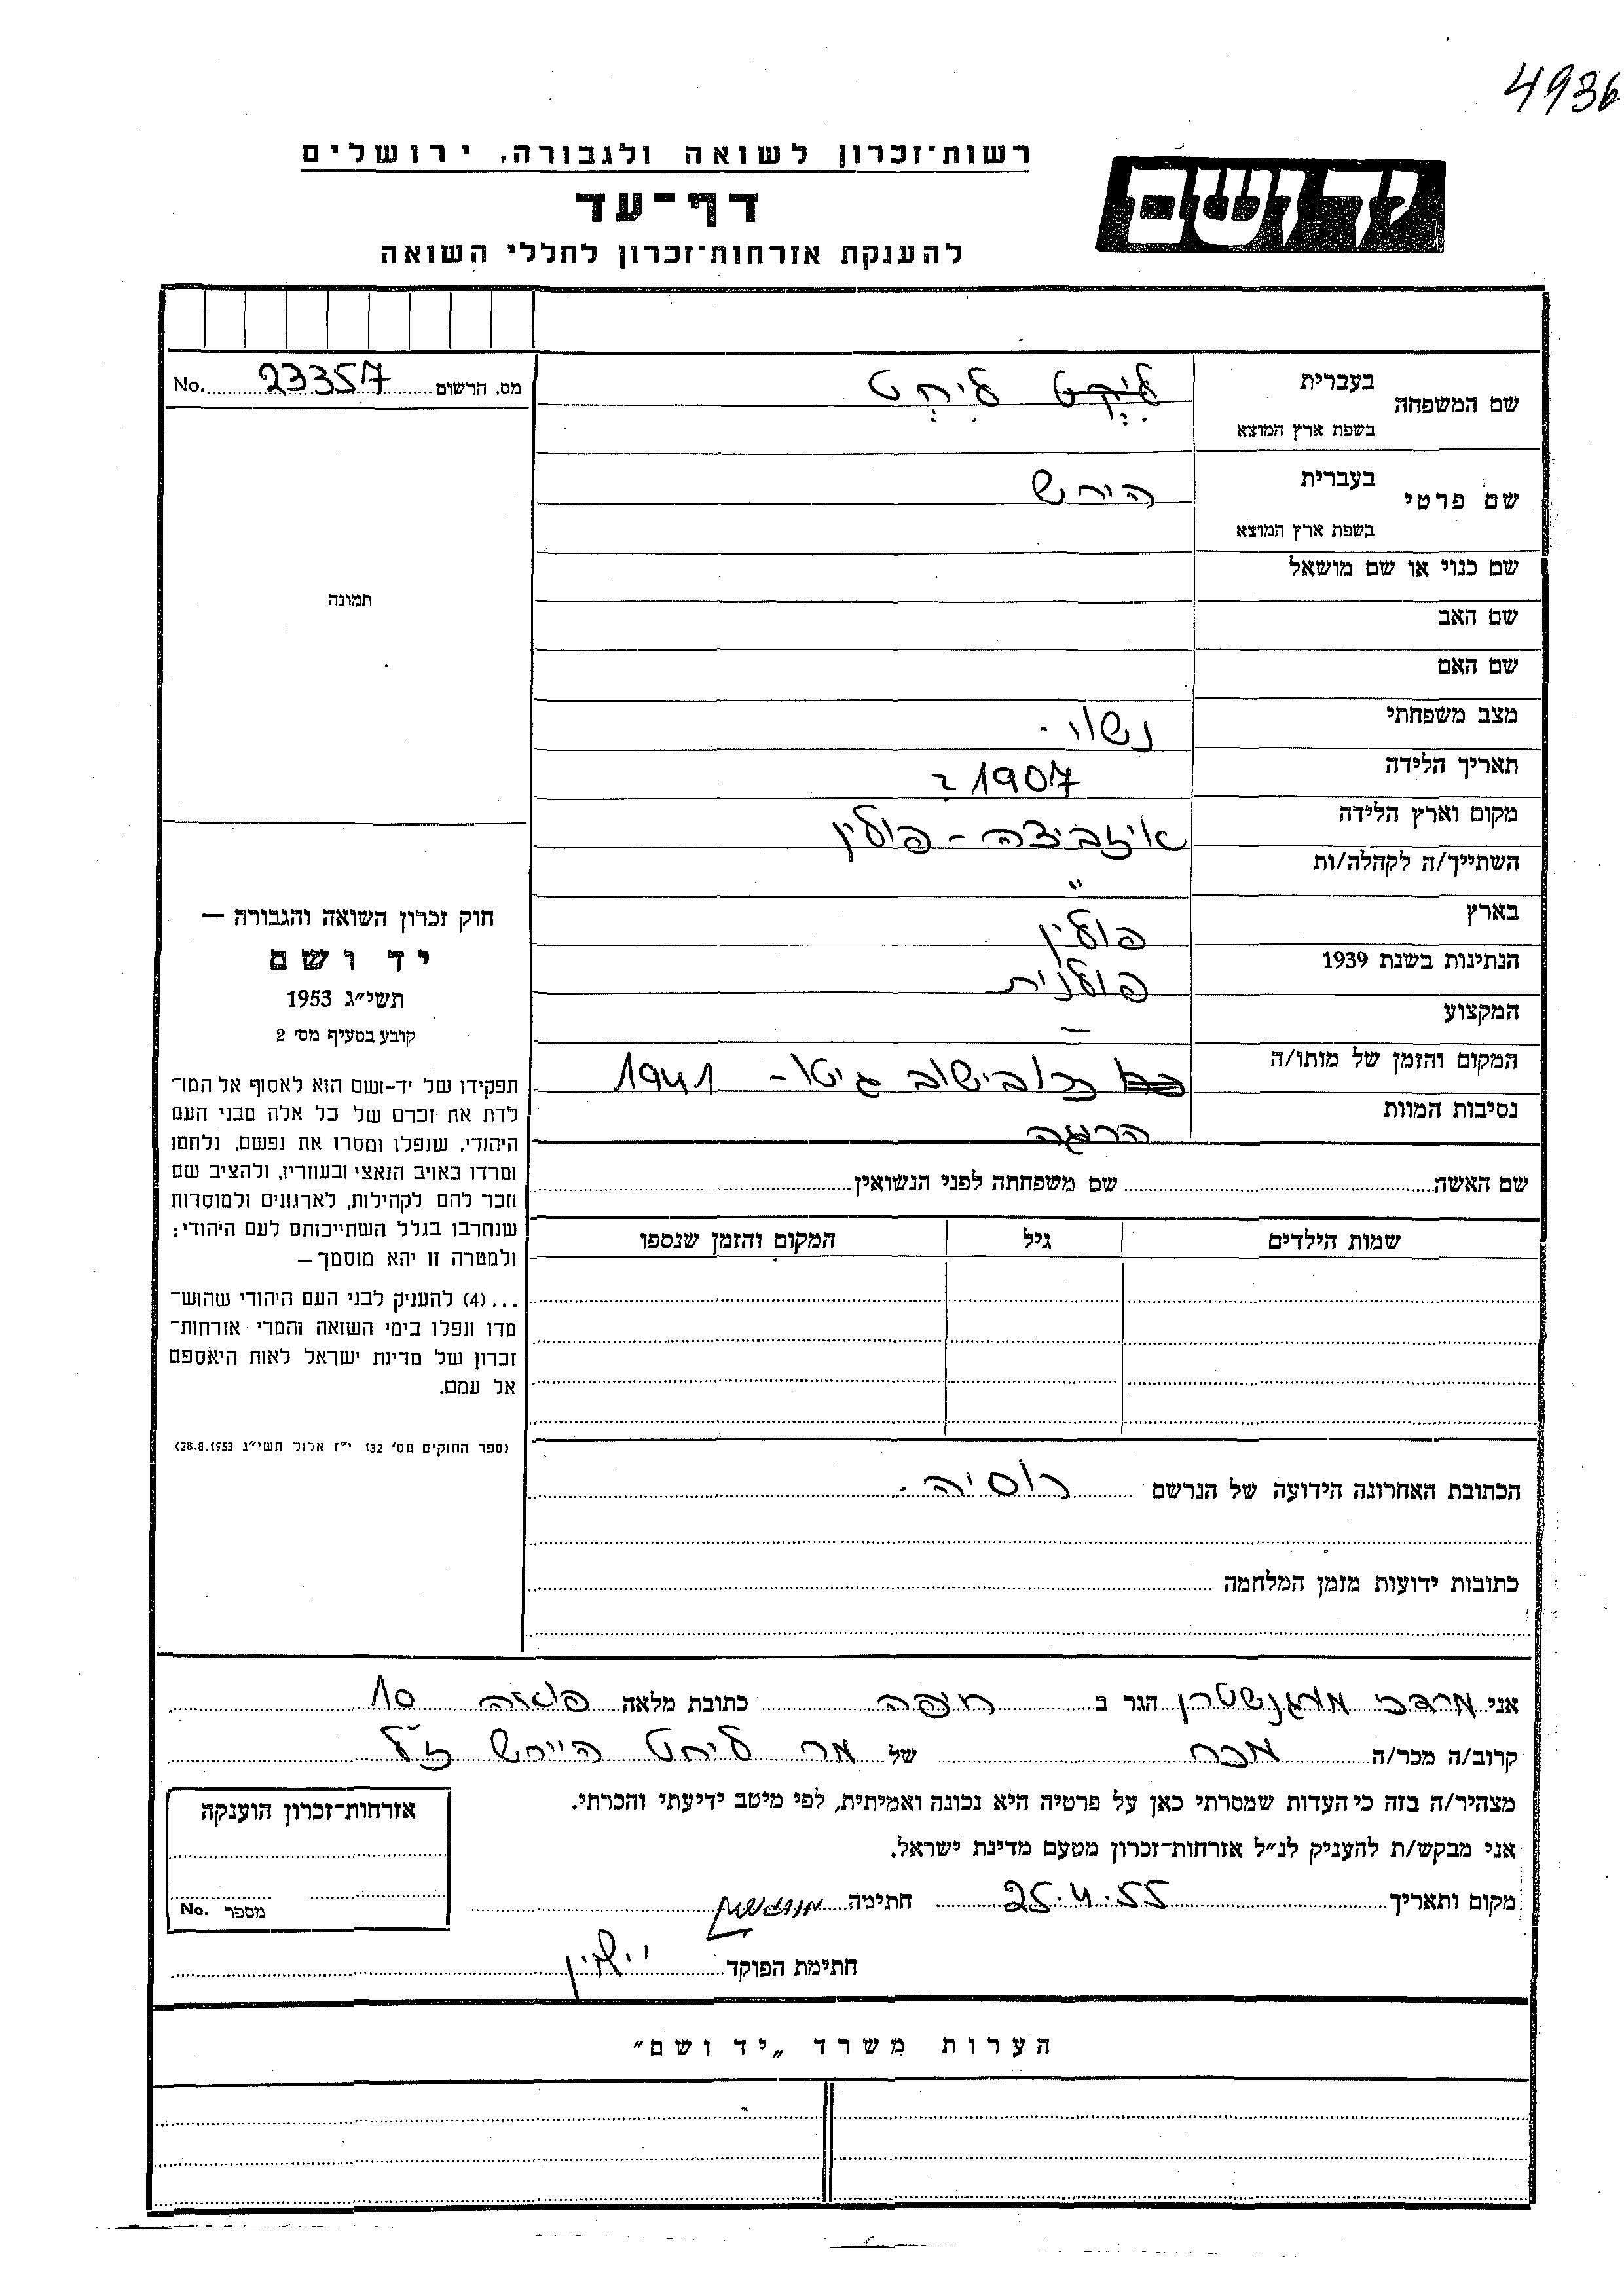 4936
רשות־זכרון לשואה ולגבורה, ירושלים
יד ושם
דף־עד
להענקת אזרחות־זכרון לחללי השואה
מס. הרשום 23357 No.
שם המשפחה
בעברית ליכט ליחט
בשפת ארץ המוצא
שם פרטי
בעברית הירש
בשפת ארץ המוצא
שם כנוי או שם מושאל
שם האב
שם האם
מצב משפחתי נשוי.
תאריך הלידה 1907 ?
מקום וארץ הלידה איזביצה - פולין
השתייך/ה לקהלה/ות "
בארץ פולין
הנתינות בשנת 1939 פולנית
המקצוע —
המקום והזמן של מותו/ה גיטו - 1941
נסיבות המוות הרעבה
שם האשה שם משפחתה לפני הנשואין
שמות הילדים גיל המקום והזמן שנספו
הכתובת האחרונה הידועה של הנרשם רוסיה.
כתובות ידועות מזמן המלחמה
תמונה
חוק זכרון השואה והגבורה —
יד ושם
תשי״ג 1953
קובע בסעיף מס׳ 2
תפקידו של יד-ושם הוא לאסוף אל המו־
לדת את זכרם של כל אלה מבני העם
היהודי, שנפלו ומסרו את נפשם, נלחמו
ומרדו באויב הנאצי ובעוזריו, ולהציב שם
וזכר להם לקהילות, לארגונים ולמוסדות
שנחרבו בגלל השתייכותם לעם היהודי;
ולמטרה זו יהא מוסמך —
...(4) להעניק לבני העם היהודי שהוש־
מדו ונפלו בימי השואה והמרי אזרחות־
זכרון של מדינת ישראל לאות היאספם
אל עמם.
(ספר החוקים מס׳ 132 י״ז אלול תשי״ג 28.8.1953)
אני מרדכי מורגנשטרן הגר ב חיפה כתובת מלאה 10
קרוב/ה מכר/ה מכר של מר ליחט הירש ז"ל
מצהיר/ה בזה כי העדות שמסרתי כאן על פרטיה היא נכונה ואמיתית, לפי מיטב ידיעתי והכרתי.
אני מבקש/ת להעניק לנ״ל אזרחות־זכרון מטעם מדינת ישראל.
מקום ותאריך 25.4.55 חתימה
חתימת הפוקד
אזרחות־זכרון הוענקה
מספר No.
הערות משרד „יד ושם״